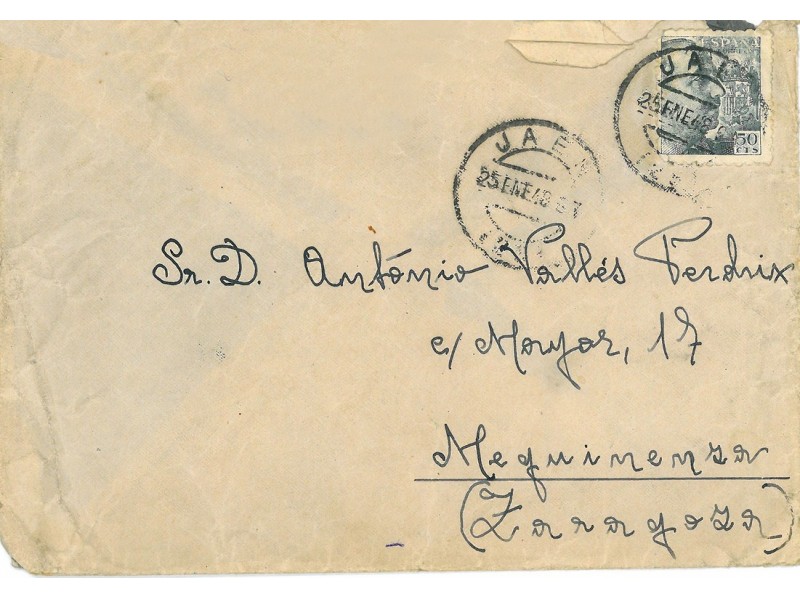 ESPAÑA
JAEN
25 ENE 48
50
CTS
JAEN
25 ENE 48
Sr. D. António Vallés Perdrix
c/ Mayor, 17
Mequinenza
(Zaragoza)